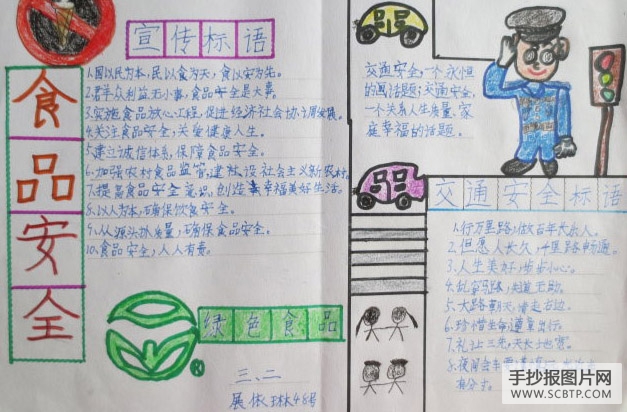 食品安全
宣传标语
1.国以民为本,民以食为天,食以安为先。
2.群众利益无小事,食品安全是大事
3.实施食品放心工程,促进经济社会协调发展。
4.关注食品安全,关爱健康人生。
5.建立诚信体系,保障食品安全。
6.加强农村食品监管,建设社会主义新农村
7.提高食品安全意识,创造幸福美好生活。
8.以人为本,确保饮食安全。
9.从源头抓质量,确保食品安全。
10.食品安全,人人有责。
绿色食品
三、二
48号
交通安全,一个永恒
的话题;交通安全,
一个关系人生质量、家
庭幸福的话题。
交通安全标语
1.行万里路,做百年长乐人。
2.但愿人长久,千里路畅通。
3.人生美好,步步小心。
5.大路朝天,请走右边。
6.珍惜生命遵章
7.礼让三先,天长地
8.夜间会车需
有分寸。
手抄报图片网
WWW.SCBTP.COM